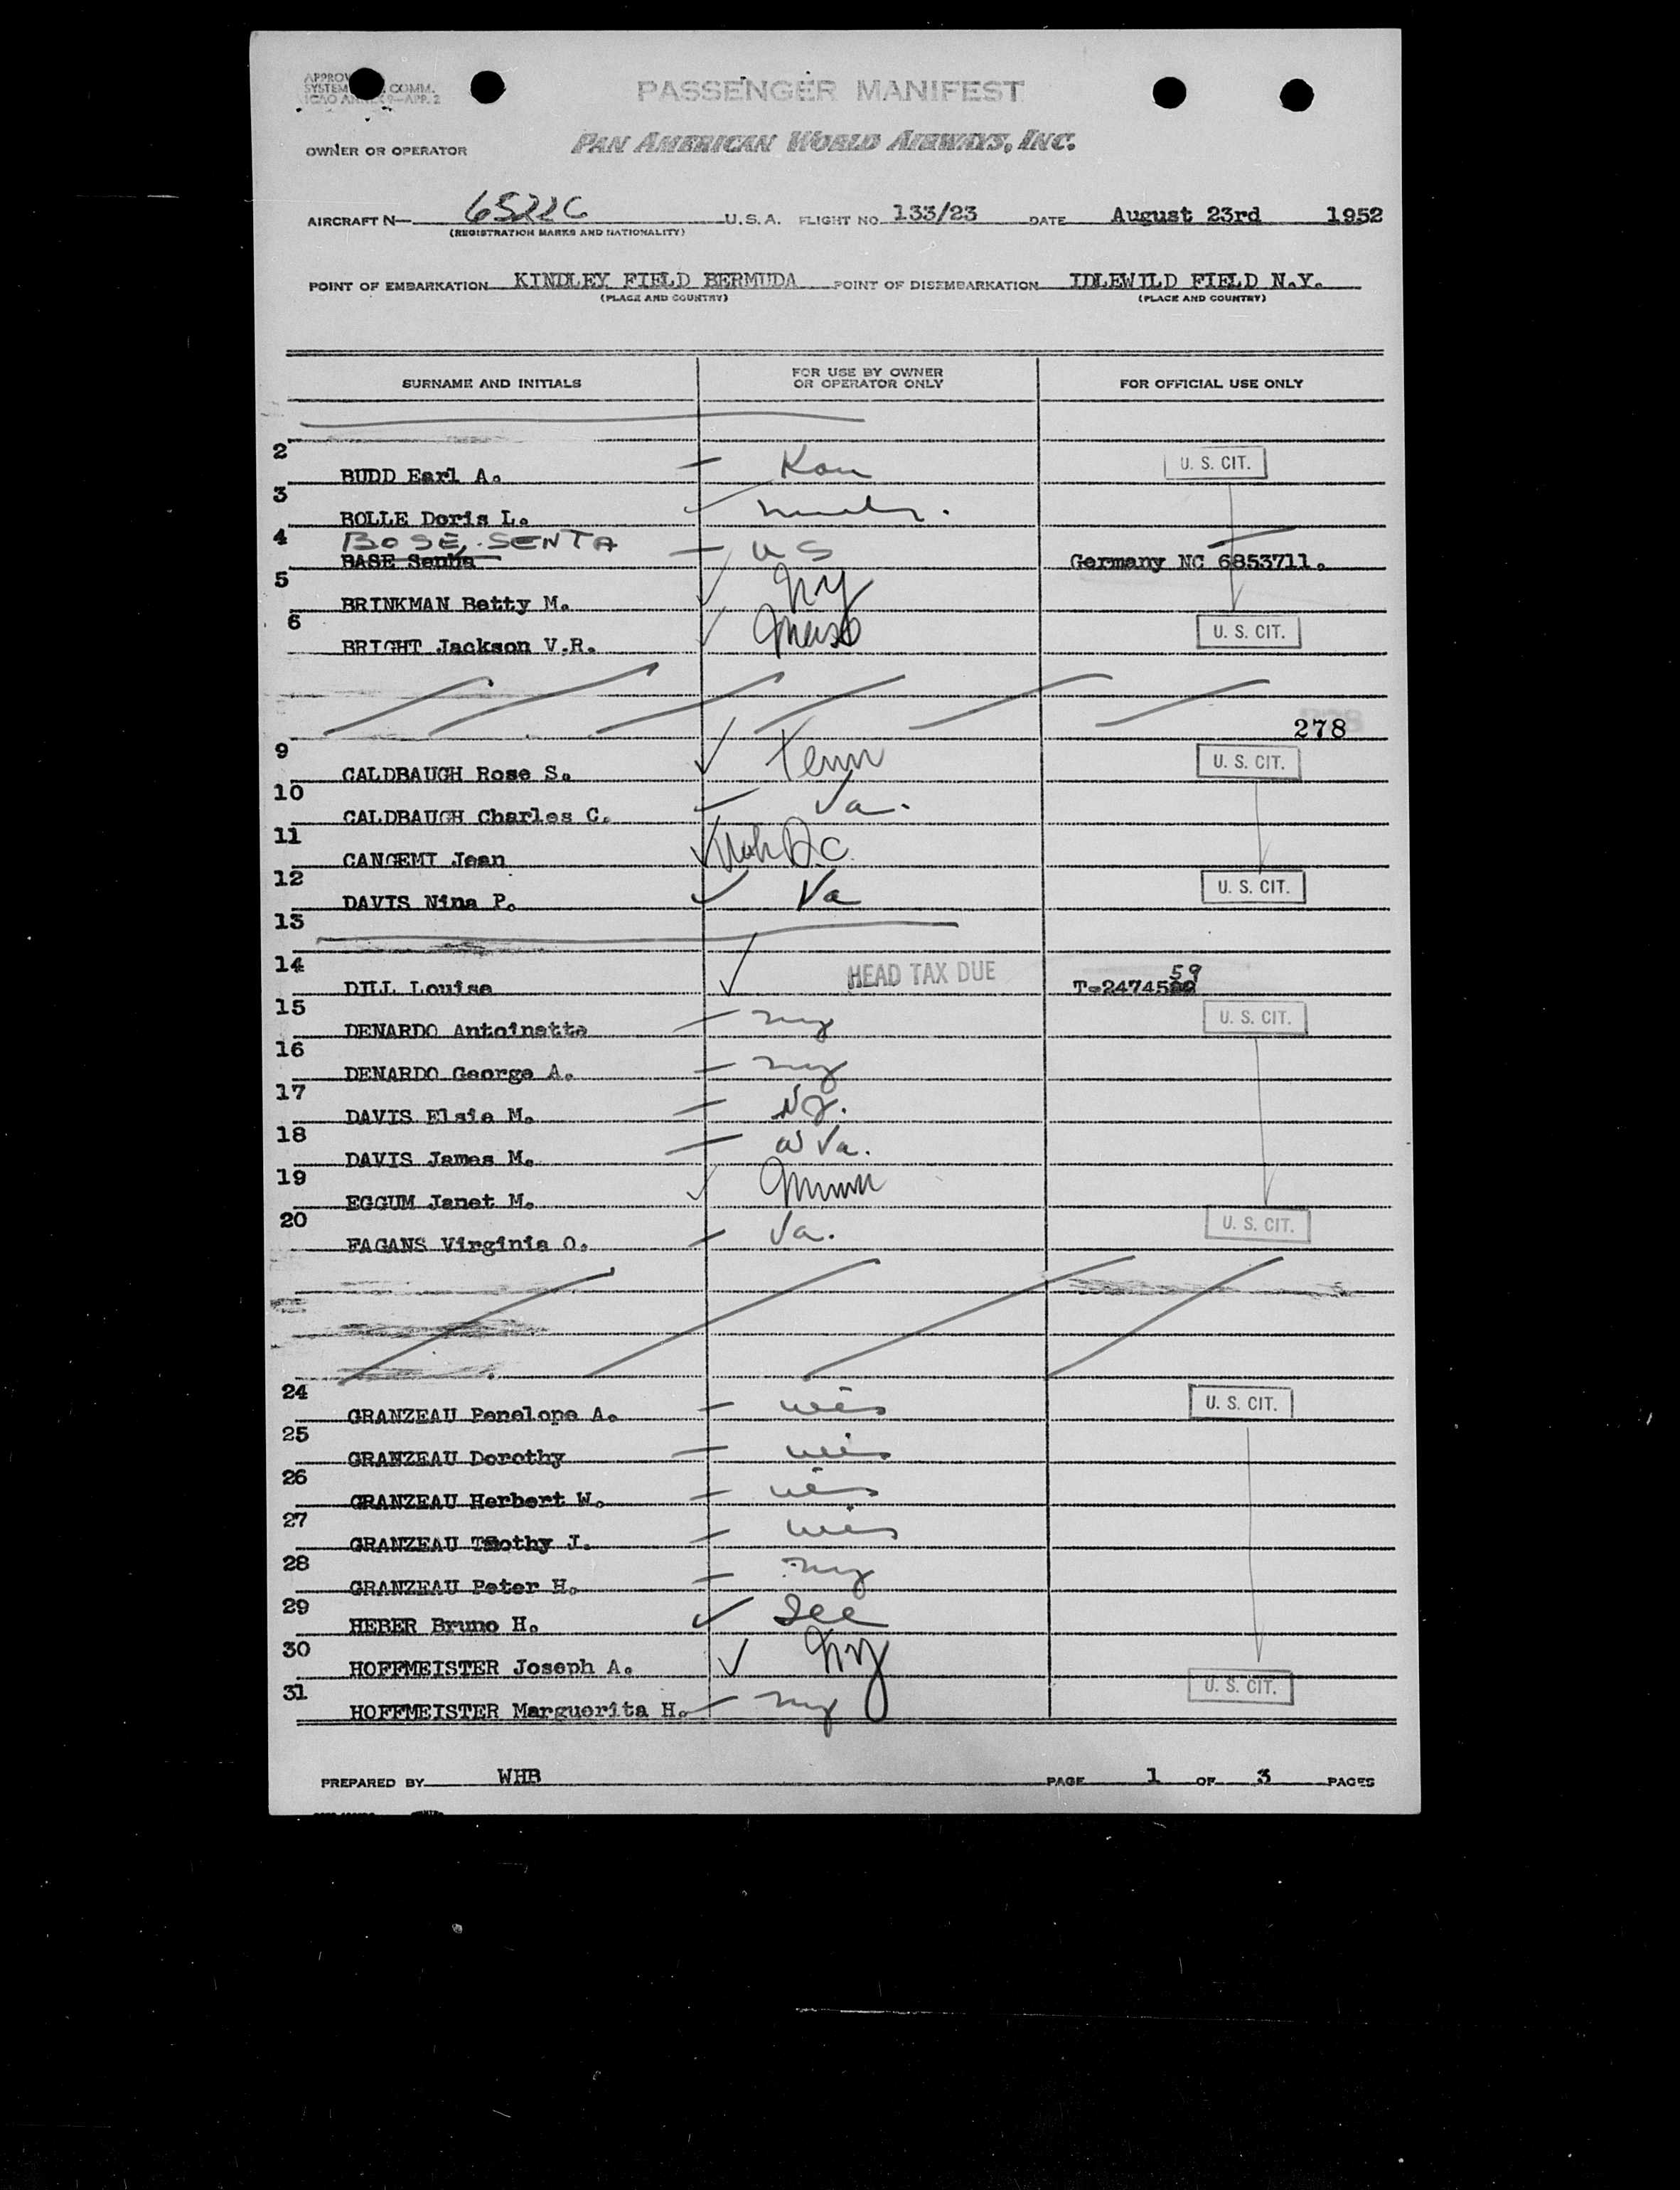 PASSENGER MANIFEST
COMM.
OWNER OR OPERATOR PAN AMERICAN WORLD AIRWAYS, INC.
AIRCRAFT N— 6522C U.S.A. FLIGHT NO. 133/23 DATE August 23rd 1952
(REGISTRATION MARKS AND NATIONALITY)
POINT OF EMBARKATION KINDLEY FIELD BERMUDA POINT OF DISEMBARKATION IDLEWILD FIELD N.Y.
(PLACE AND COUNTRY) (PLACE AND COUNTRY)
SURNAME AND INITIALS FOR USE BY OWNER OR OPERATOR ONLY FOR OFFICIAL USE ONLY
2 BUDD Earl A. Kan U. S. CIT.
3 BOLLE Doris L.
4 BOSE, SENTA
BASE Senha US Germany NC 6853711.
5 BRINKMAN Betty M. NY
6 BRIGHT Jackson V.R. Mass U. S. CIT.
278
9 CALDBAUGH Rose S. Tenn U. S. CIT.
10 CALDBAUGH Charles C. Va.
11 CANGEMI Jean Wash D.C.
12 DAVIS Nina P. Va U. S. CIT.
13
14 DILL Louise HEAD TAX DUE T-24745 59
15 DENARDO Antoinette ny U. S. CIT.
16 DENARDO George A. ny
17 DAVIS Elsie M. NJ.
18 DAVIS James M. W Va.
19 EGGUM Janet M. Minn
20 FAGANS Virginia O. Va. U. S. CIT.
24 GRANZEAU Penelope A. wis U. S. CIT.
25 GRANZEAU Dorothy wis
26 GRANZEAU Herbert W. wis
27 GRANZEAU Tmothy J. wis
28 GRANZEAU Peter H. ny
29 HEBER Bruno H. Ill
30 HOFFMEISTER Joseph A. NY
31 HOFFMEISTER Marguerita H. ny U. S. CIT.
PREPARED BY WHB PAGE 1 OF 3 PAGES